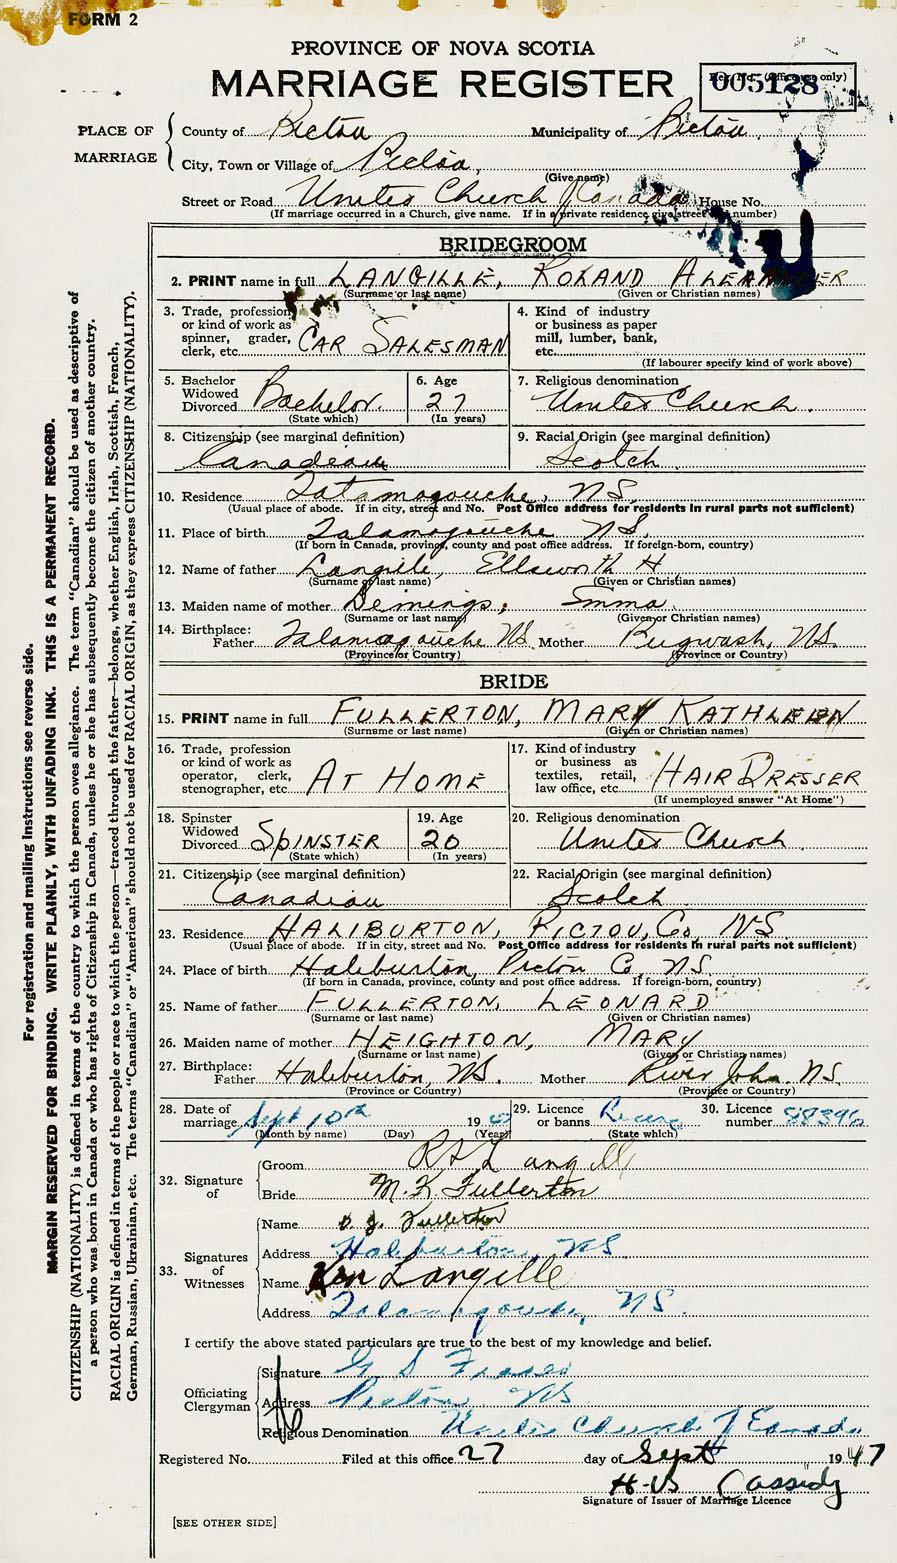 FORM 2
PROVINCE OF NOVA SCOTIA
MARRIAGE REGISTER
Reg. No. (Office use only)
005128
PLACE OF MARRIAGE
County of Pictou Municipality of Pictou
City, Town or Village of Pictou
(Give name)
Street or Road United Church of Canada House No.
(If marriage occurred in a Church, give name. If in a private residence, give street and number)
BRIDEGROOM
2. PRINT name in full LANGILLE, ROLAND ALEXANDER
(Surname or last name) (Given or Christian names)
3. Trade, profession or kind of work as spinner, grader, clerk, etc. CAR SALESMAN
4. Kind of industry or business as paper mill, lumber, bank, etc.
(If labourer specify kind of work above)
5. Bachelor Widowed Divorced Bachelor
(State which)
6. Age 27
(In years)
7. Religious denomination United Church
8. Citizenship (see marginal definition) Canadian
9. Racial Origin (see marginal definition) Scotch
10. Residence Tatamagouche, NS.
(Usual place of abode. If in city, street and No. Post Office address for residents in rural parts not sufficient)
11. Place of birth Tatamagouche NS.
(If born in Canada, province, county and post office address. If foreign-born, country)
12. Name of father Langille, Ellsworth H
(Surname or last name) (Given or Christian names)
13. Maiden name of mother Demings, Emma
(Surname or last name) (Given or Christian names)
14. Birthplace: Father Tatamagouche NS. Mother Pugwash, NS.
(Province or Country) (Province or Country)
BRIDE
15. PRINT name in full FULLERTON, MARY KATHLEEN
(Surname or last name) (Given or Christian names)
16. Trade, profession or kind of work as operator, clerk, stenographer, etc. AT HOME
17. Kind of industry or business as textiles, retail, law office, etc. HAIR DRESSER
(If unemployed answer "At Home")
18. Spinster Widowed Divorced SPINSTER
(State which)
19. Age 20
(In years)
20. Religious denomination United Church
21. Citizenship (see marginal definition) Canadian
22. Racial Origin (see marginal definition) Scotch
23. Residence HALIBURTON, PICTOU, Co. NS.
(Usual place of abode. If in city, street and No. Post Office address for residents in rural parts not sufficient)
24. Place of birth Haliburton, Pictou Co, NS.
(If born in Canada, province, county and post office address. If foreign-born, country)
25. Name of father FULLERTON, LEONARD
(Surname or last name) (Given or Christian names)
26. Maiden name of mother HEIGHTON, MARY
(Surname or last name) (Given or Christian names)
27. Birthplace: Father Haliburton, NS. Mother River John. NS.
(Province or Country) (Province or Country)
28. Date of marriage Sept 10th 19
(Month by name) (Day) (Year)
29. Licence or banns
(State which)
30. Licence number 88396
32. Signature of
Groom R A Langille
Bride M. K. Fullerton
33. Signatures of Witnesses
Name Fullerton
Address Haliburton, NS.
Name Ken Langille
Address Tatamagouche, NS.
I certify the above stated particulars are true to the best of my knowledge and belief.
Officiating Clergyman
Signature G S Fraser
Address Pictou, NS
Religious Denomination United Church of Canada
Registered No. Filed at this office 27 day of Sept 1947
H. Cassidy
Signature of Issuer of Marriage Licence
[SEE OTHER SIDE]
For registration and mailing instructions see reverse side.
MARGIN RESERVED FOR BINDING. WRITE PLAINLY, WITH UNFADING INK. THIS IS A PERMANENT RECORD.
CITIZENSHIP (NATIONALITY) is defined in terms of the country to which the person owes allegiance. The term "Canadian" should be used as descriptive of
a person who was born in Canada or who has rights of Citizenship in Canada, unless he or she has subsequently become the citizen of another country.
RACIAL ORIGIN is defined in terms of the people or race to which the person—traced through the father—belongs, whether English, Irish, Scottish, French,
German, Russian, Ukrainian, etc. The terms "Canadian" or "American" should not be used for RACIAL ORIGIN, as they express CITIZENSHIP (NATIONALITY).